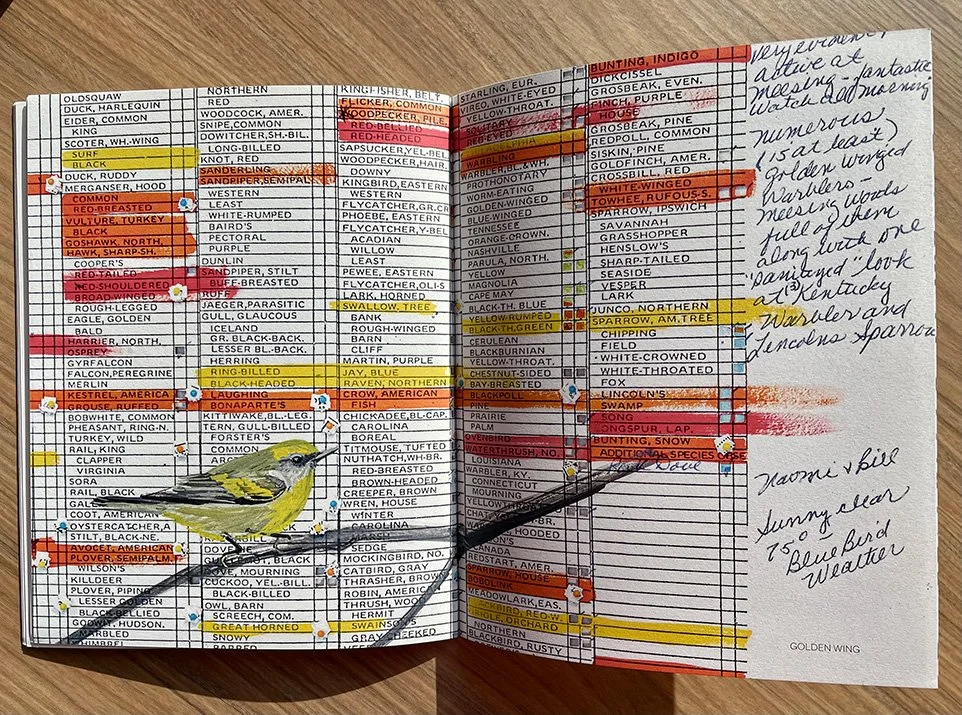 OLDSQUAW
DUCK, HARLEQUIN
EIDER, COMMON
KING
SCOTER, WH-WING
SURF
BLACK
DUCK, RUDDY
MERGANSER, HOOD
COMMON
RED-BREASTED
VULTURE, TURKEY
BLACK
GOSHAWK, NORTH.
HAWK, SHARP-SH.
COOPER'S
RED-TAILED
RED-SHOULDERED
BROAD-WINGED
ROUGH-LEGGED
EAGLE, GOLDEN
BALD
HARRIER, NORTH.
OSPREY
GYRFALCON
FALCON, PEREGRINE
MERLIN
KESTREL, AMERICA
GROUSE, RUFFED
BOBWHITE, COMMON
PHEASANT, RING-N.
TURKEY, WILD
RAIL, KING
CLAPPER
VIRGINIA
SORA
RAIL, BLACK
COOT, AMERICAN
OYSTERCATCHER, A
STILT, BLACK-NE.
AVOCET, AMERICAN
PLOVER, SEMIPALM.
WILSON'S
KILLDEER
PLOVER, PIPING
LESSER GOLDEN
BLACK-BELLIED
GODWIT, HUDSON.
MARBLED
NORTHERN
RED
WOODCOCK, AMER.
SNIPE, COMMON
DOWITCHER, SH-BIL.
LONG-BILLED
KNOT, RED
SANDERLING
SANDPIPER, SEMIPAL
WESTERN
LEAST
WHITE-RUMPED
BAIRD'S
PECTORAL
PURPLE
DUNLIN
SANDPIPER, STILT
BUFF-BREASTED
RUFF
JAEGER, PARASITIC
GULL, GLAUCOUS
ICELAND
GR. BLACK-BACK.
LESSER BL.-BACK.
HERRING
RING-BILLED
BLACK-HEADED
LAUGHING
BONAPARTE'S
KITTIWAKE, BL-LEG.
TERN, GULL-BILLED
FORSTER'S
COMMON
DOVE, MOURNING
CUCKOO, YEL.-BILL.
BLACK-BILLED
OWL, BARN
SCREECH, COM.
GREAT HORNED
SNOWY
BARRED
KINGFISHER, BELT.
FLICKER, COMMON
WOODPECKER, PILE.
RED-BELLIED
RED-HEADED
SAPSUCKER, YEL-BEL.
WOODPECKER, HAIR.
DOWNY
KINGBIRD, EASTERN
WESTERN
FLYCATCHER, GR. CR.
PHOEBE, EASTERN
FLYCATCHER, Y-BEL.
ACADIAN
WILLOW
LEAST
PEWEE, EASTERN
FLYCATCHER, OLI-S
LARK, HORNED
SWALLOW, TREE
BANK
ROUGH-WINGED
BARN
CLIFF
MARTIN, PURPLE
JAY, BLUE
RAVEN, NORTHERN
CROW, AMERICAN
FISH
CHICKADEE, BL-CAP.
CAROLINA
BOREAL
TITMOUSE, TUFTED
NUTHATCH, WH-BR.
RED-BREASTED
BROWN-HEADED
CREEPER, BROWN
WREN, HOUSE
WINTER
CAROLINA
MARSH
SEDGE
MOCKINGBIRD, NO.
CATBIRD, GRAY
THRASHER, BROWN
ROBIN, AMERICAN
THRUSH, WOOD
HERMIT
SWAINSON'S
GRAY-CHEEKED
STARLING, EUR.
VIREO, WHITE-EYED
YELLOW-THROAT.
SOLITARY
RED-EYED
PHILADELPHIA
WARBLING
WARBLER, BL.WH.
PROTHONOTARY
WORM-EATING
GOLDEN-WINGED
BLUE-WINGED
TENNESSEE
ORANGE-CROWN.
NASHVILLE
PARULA, NORTH.
YELLOW
MAGNOLIA
CAPE MAY
BLACK-TH. BLUE
YELLOW-RUMPED
BLACK-TH, GREEN
CERULEAN
BLACKBURNIAN
YELLOW-THROAT.
CHESTNUT-SIDED
BAY-BREASTED
BLACKPOLL
PINE
PRAIRIE
PALM
OVENBIRD
WATERTHRUSH, NO.
LOUISIANA
WARBLER, KY.
CONNECTICUT
MOURNING
HOODED
CANADA
REDSTART, AMER.
SPARROW, HOUSE
BOBOLINK
MEADOWLARK, EAS.
BLACKBIRD, RED-W
ORIOLE, ORCHARD
NORTHERN
BLACKBIRD, RUSTY
BUNTING, INDIGO
DICKCISSEL
GROSBEAK, EVEN.
FINCH, PURPLE
HOUSE
GROSBEAK, PINE
REDPOLL, COMMON
SISKIN, PINE
GOLDFINCH, AMER.
CROSSBILL, RED
WHITE-WINGED
TOWHEE, RUFOUS-S.
SPARROW, IPSWICH
SAVANNAH
GRASSHOPPER
HENSLOW'S
SHARP-TAILED
SEASIDE
VESPER
LARK
JUNCO, NORTHERN
SPARROW, AM. TREE
CHIPPING
FIELD
WHITE-CROWNED
WHITE-THROATED
FOX
LINCOLN'S
SWAMP
SONG
LONGSPUR, LAP.
BUNTING, SNOW
ADDITIONAL SPECIES OBSE
Dove
Very evident
active at
meesing - fantastic
Watch all morning
numerous
(15 at least)
Golden Winged
Warblers -
meesing woods
full of them
along with one
look
at (3) Kentucky
Warbler and
Lincolns Sparrow
Naomi & Bill
Sunny clear
75° -
Blue Bird
Weather
GOLDEN WING